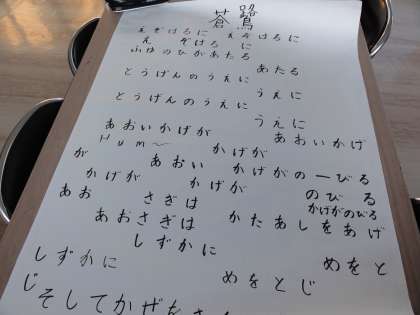 蒼鷺
えぞけろに えぞけろに
え ぞけろ に
ふゆのひがあたる
あたる
とうげんのうえに
うえに
とうげんのうえに
うえに
あおいかげが あおいかげ
Hum〜 かげが
が あおい かげがのーびる
かげが かげが のびる
かげがのびる
あお さぎは
あおさぎは かたあしをあげ
しずかに
しずかに めをと
じ めをとじ
そしてかぜを